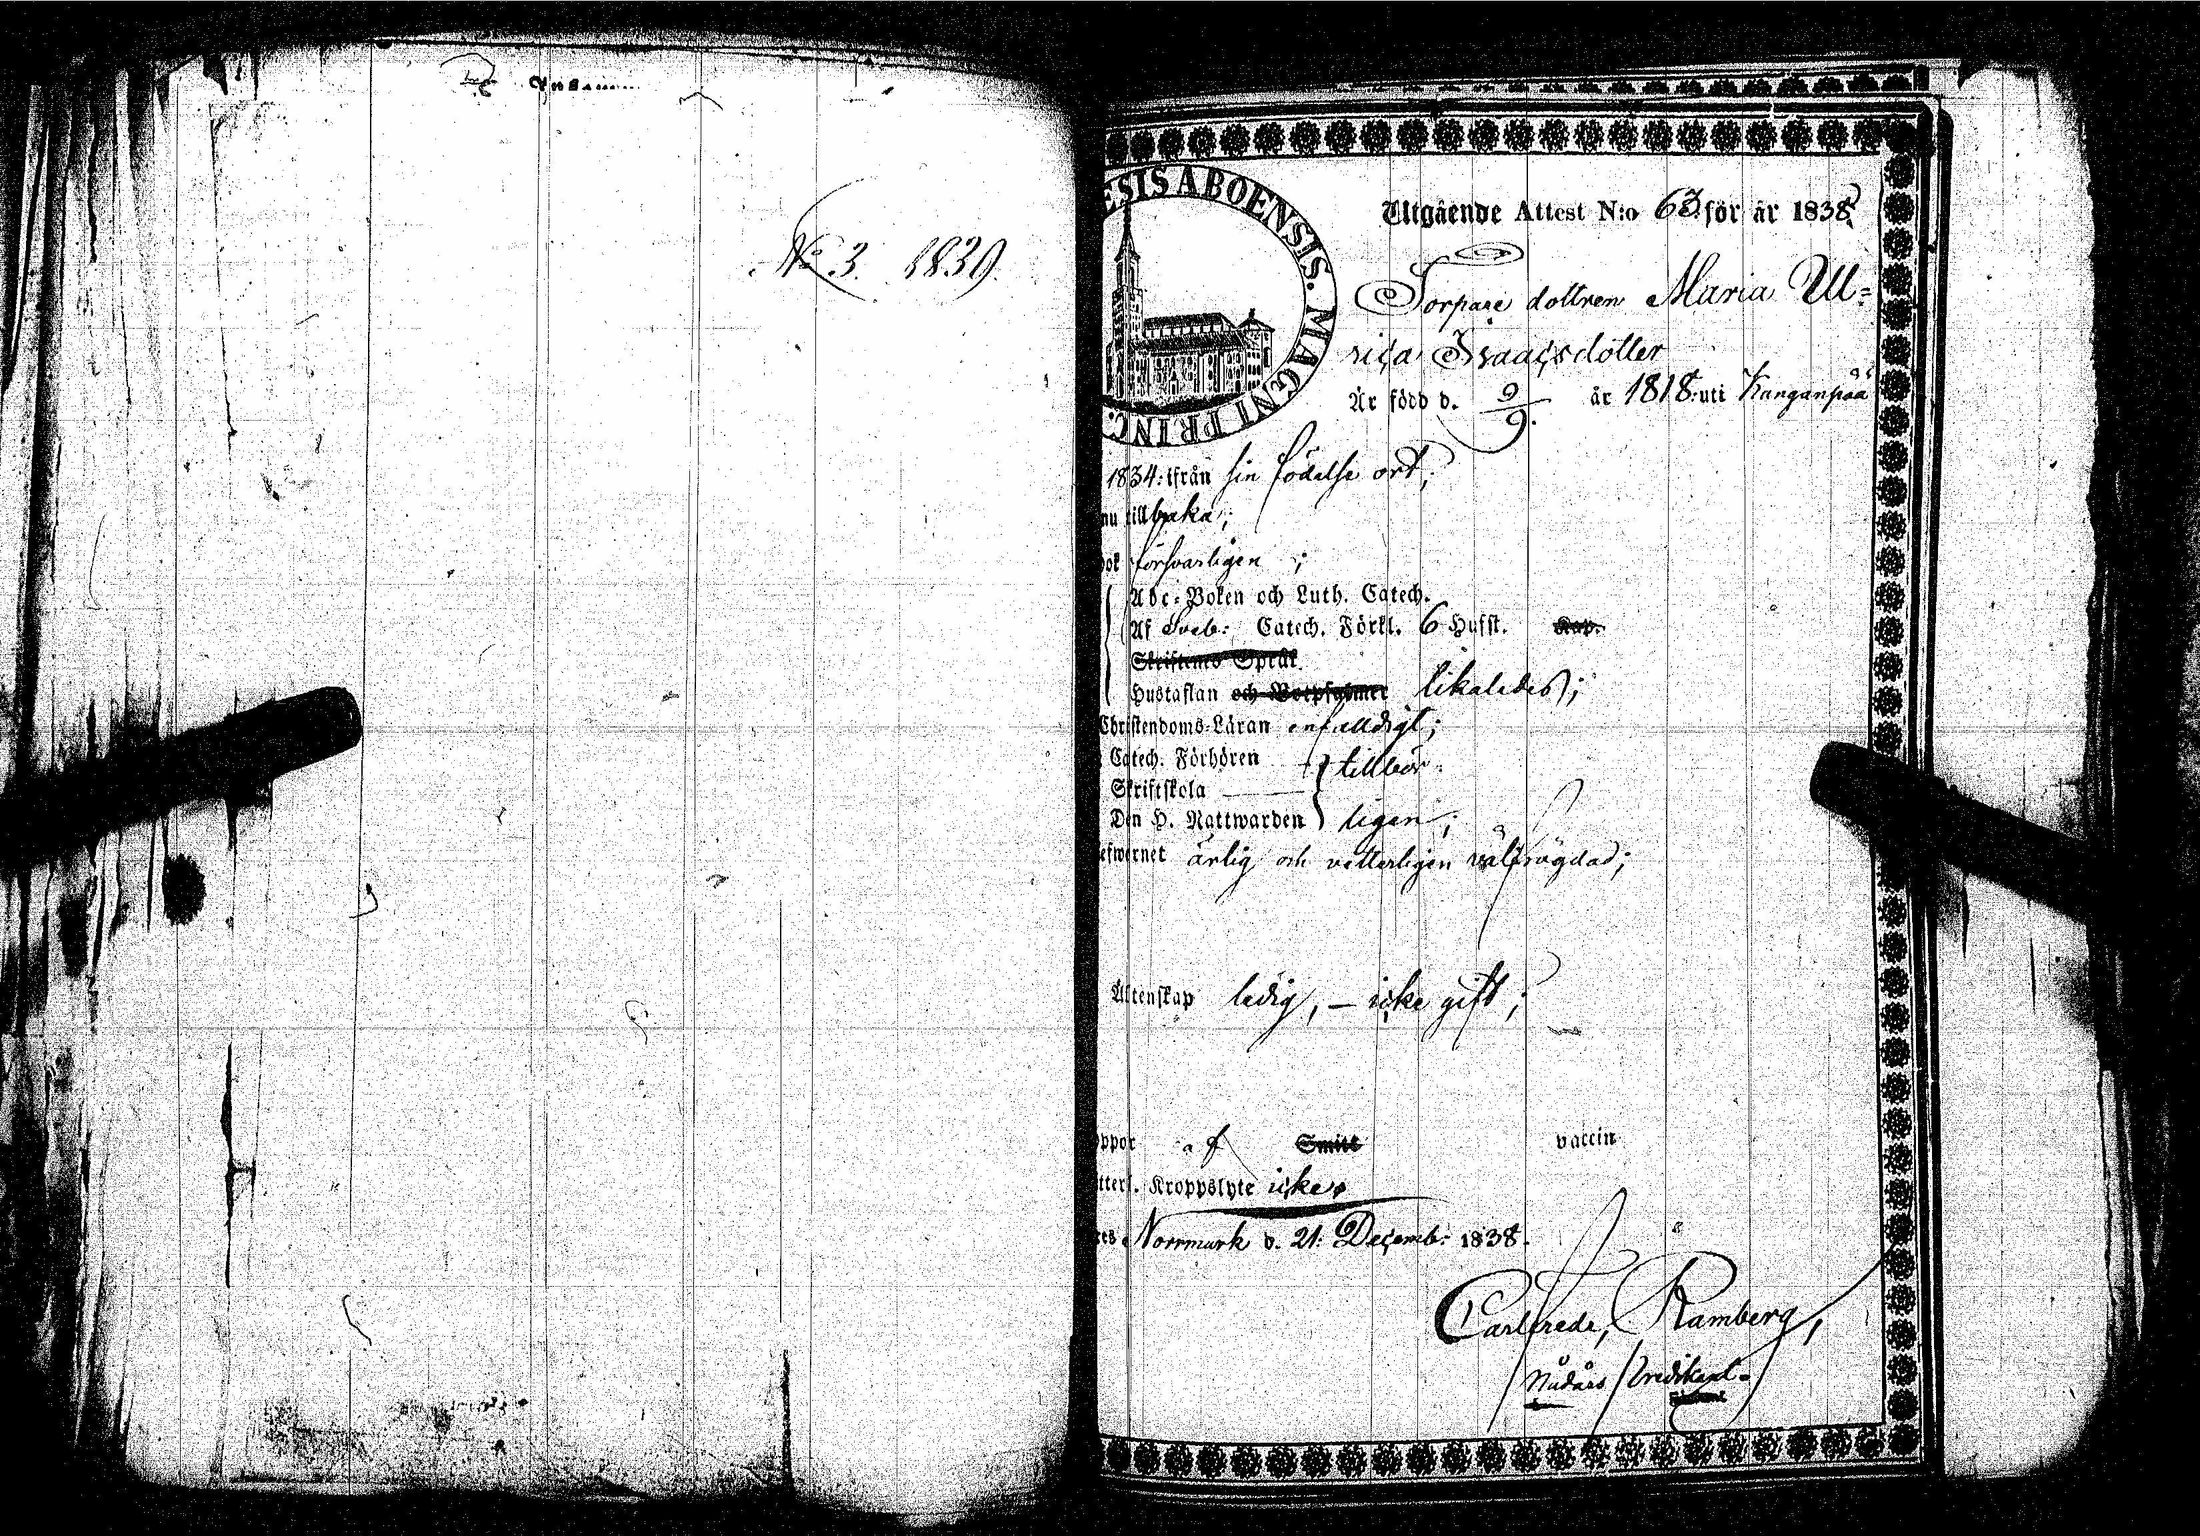 No 3. 1839.
ESIS ABOENSIS. MAGNI PRINC.
Utgående Attest N:o 63 för år 1838
Torpare dottren Maria Ul=
rica Isaacsdotter
Är född d. 9/9. år 1818: uti Kanganpää
1834: ifrån sin födelse ort;
nu tillbaka;
bok försvarligen ;
Abc-Boken och Luth. Catech.
Af Sveb: Catech. Förkl. 6 Hufst. Kap.
Skriftens Språk
Hustaflan och Botpsalmer likaledes;
Christendoms-Läran enfalldigt;
Catech. Förhören } tillbör-
Skriftskola
Den H. Nattwarden } ligen;
efwernet ärlig och vetterligen välfrägdad;
Äktenskap ledig, – icke gift;
oppor af Smitt vaccin
tterl. Kroppslyte icke.
Norrmark d. 21: Decemb: 1838.
Carl Fredr, Ramberg,
Nådårs Predikant.